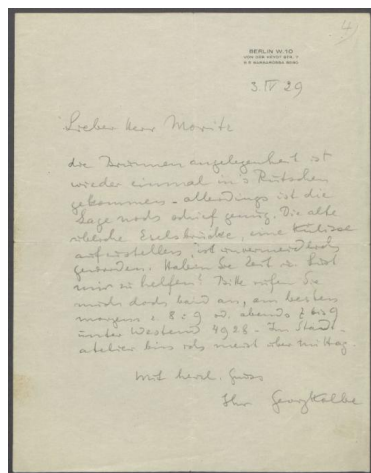 4)
BERLIN W. 10
VON DER HEYDT STR. 7
3. IV 29
Lieber Herr Moritz
die Brunnenangelegenheit ist
wieder einmal in's Rutschen
gekommen - allerdings ist die
Lage noch schief genug. Die alte
übliche Eselsbrücke, eine Kulisse
aufzustellen, ist unvermeidlich
geworden. Haben Sie Zeit u. Lust
mir zu helfen? Bitte rufen Sie
mich doch bald an, am besten
morgens 8-9 od. abends
unter Westend 4928 - Im Stadt-
atelier bin ich meist über Mittag.
Mit herzl. Gruss
Ihr Georg Kolbe